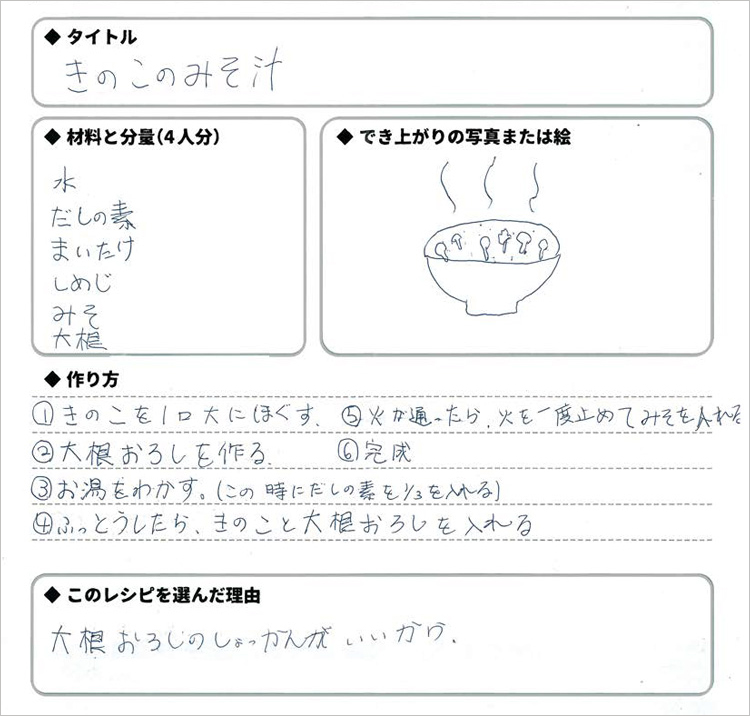 ◆ タイトル
きのこのみそ汁
◆ 材料と分量(4人分)
水
だしの素
まいたけ
しめじ
みそ
大根
◆ でき上がりの写真または絵
◆ 作り方
①きのこを1口大にほぐす.
②大根おろしを作る.
③お湯をわかす。(この時にだしの素を1/3を入れる)
④ふっとうしたら、きのこと大根おろしを入れる
⑤火が通ったら、火を一度止めてみそを入れる
⑥完成
◆ このレシピを選んだ理由
大根おろしのしょっかんがいいから.